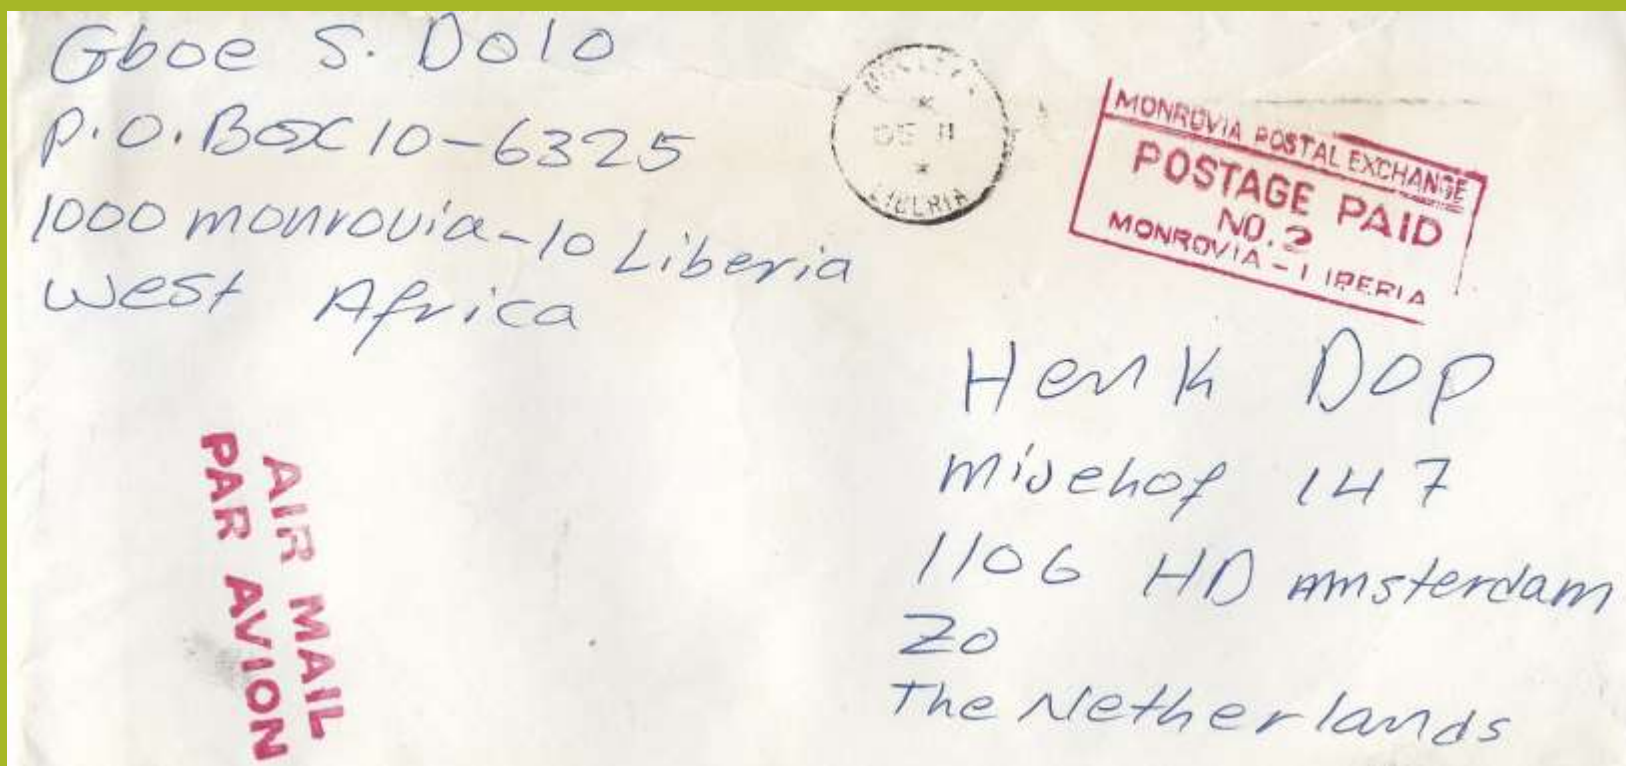 Gboe S. Dolo
P.O. Box 10-6325
1000 monrovia-10 Liberia
West Africa
LIBERIA
MONROVIA POSTAL EXCHANGE
POSTAGE PAID
NO. 2
MONROVIA - LIBERIA
AIR MAIL
PAR AVION
Henk Dop
147
1106 HD Amsterdam
ZO
The Netherlands